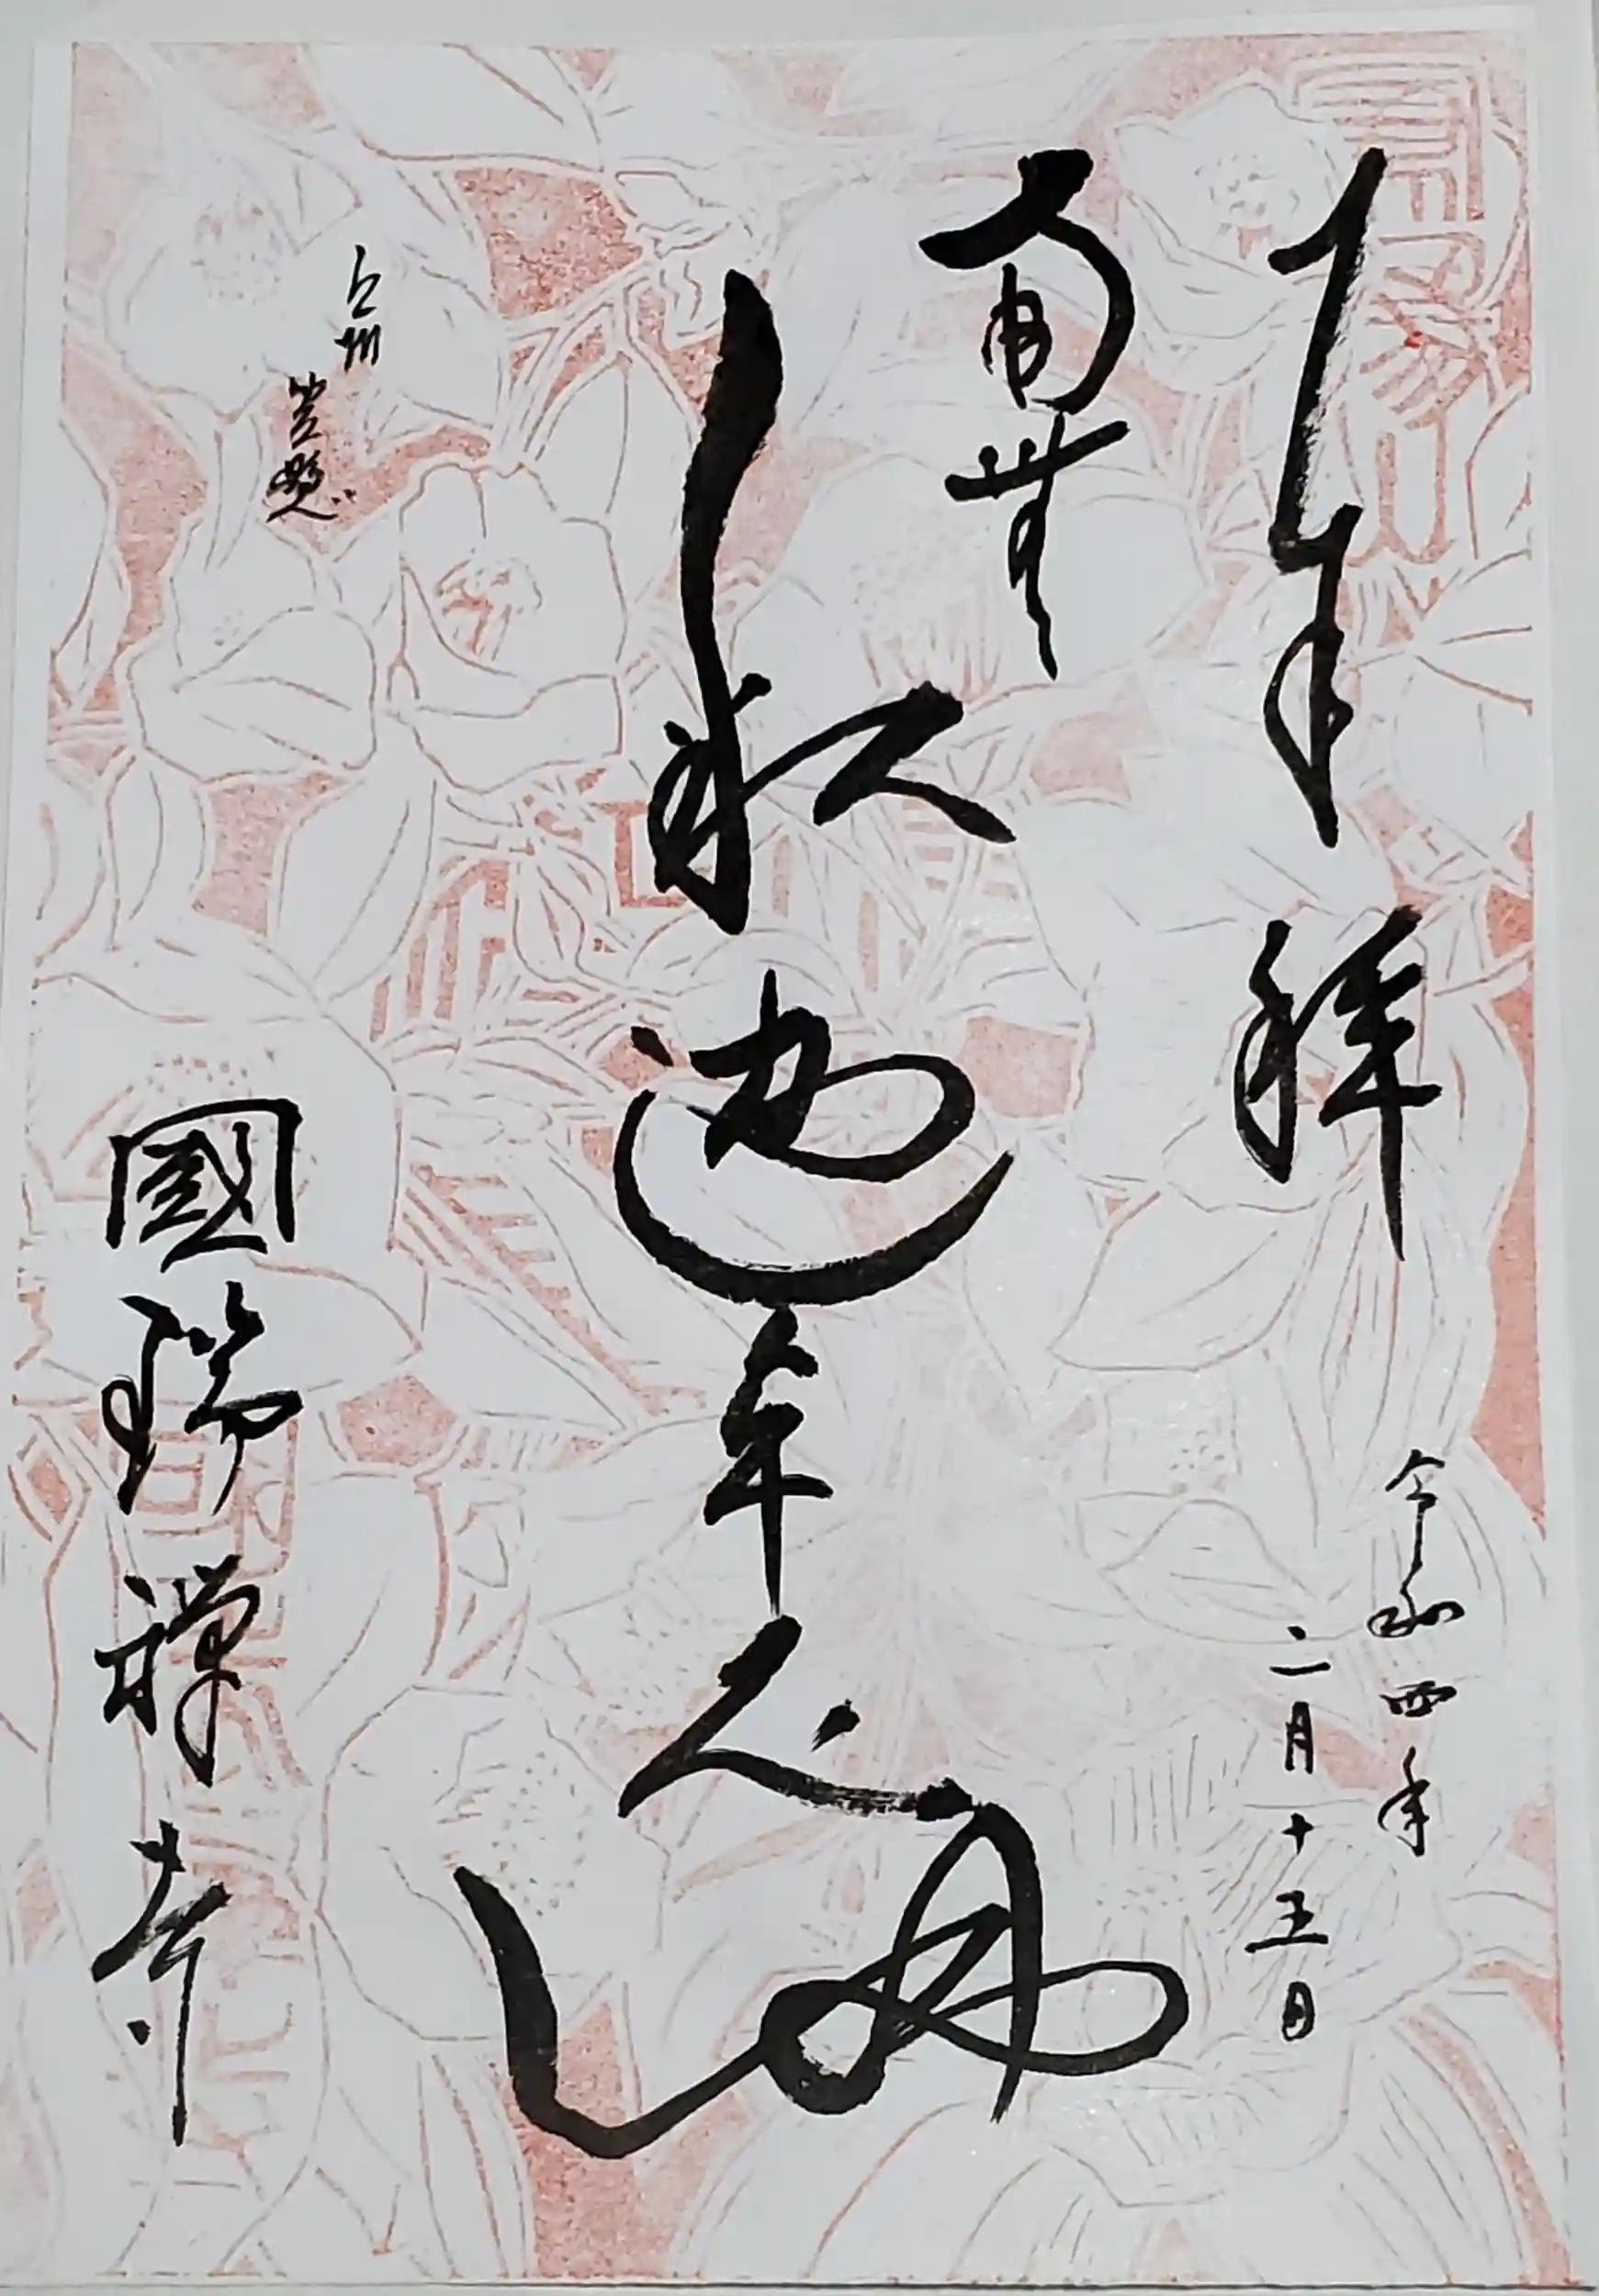 奉拝
令和四年
二月十五日
南無
釈迦牟尼仏
上州
笠懸
國瑞禅寺